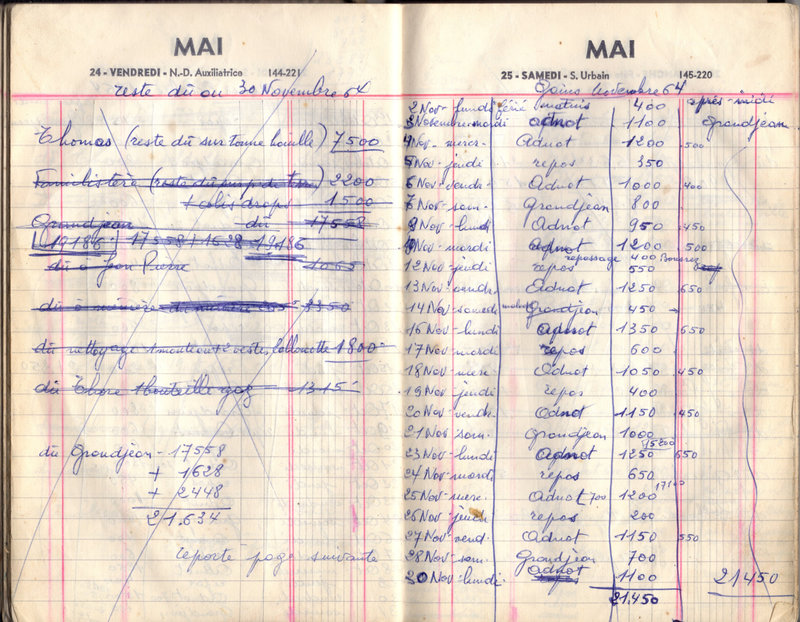 MAI
24 - VENDREDI - N.-D. Auxiliatrice 144-221
reste dû au 30 Novembre 64
Thomas (reste dû sur tonne houille) 7500
Familistère (reste dû 2200
+ colis drops 1500
Grandjean dû 17558
19186 17558 + 1628 = 19186
dû à Jean Pierre 1065
dû à mémère 3350
dû nettoyage 1 manteau + 2 vestes 1800
dû 1 bouteille gaz 1315
dû Grandjean - 17558
+ 1628
+ 2448
21.634
reporté page suivante
MAI
25 - SAMEDI - S. Urbain 145-220
Gains Novembre 64
après-midi
2 Nov - lundi férié 400
3 Novembre mardi adnot 1100 Grandjean
4 Nov - merc. Adnot 1200 500
5 Nov - jeudi repos 350
6 Nov - vendr. Adnot 1000 400
7 Nov - sam. Grandjean 800
Nov - lundi Adnot 950 450
Nov - mardi Adnot 1200 500
repassage 400
12 Nov - jeudi repos 550
13 Nov vendr. Adnot 1250 650
14 Nov - samedi Grandjean 450
16 Nov - lundi Adnot 1350 650
17 Nov - mardi repos 600
18 Nov - merc. Adnot 1050 450
19 Nov - jeudi repos 400
20 Nov - vendr. Adnot 1150 450
21 Nov - sam. Grandjean 1000
15200
23 Nov - lundi Adnot 1250 650
24 Nov - mardi repos 650
25 Nov - merc. Adnot 700 1200
26 Nov - jeudi repos 200
27 Nov - vend. Adnot 1150 550
28 Nov - sam. Grandjean 700
30 Nov - lundi adnot 1100 21450
21.450